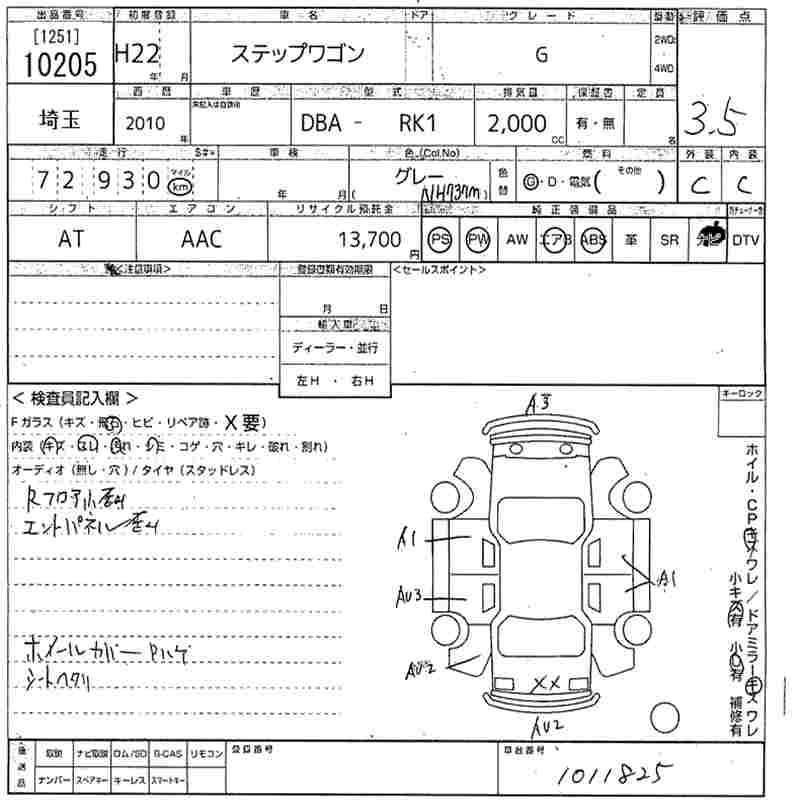 出品番号 初度登録 車名 ドア グレード 駆動 評価点
[1251]
10205 H22 年 月 ステップワゴン G 2WD 4WD
3.5
西暦 車歴 型式 排気量 保証書 定員
埼玉 2010 年 未記入は自家用 DBA - RK1 2,000 CC 有・無 名
走行 車検 色(Col.No) 燃料 外装 内装
72930 マイル km 年 月 グレー (NH737M) 色替 G・D・電気( その他 ) C C
シフト エアコン リサイクル預託金 純正装備品
AT AAC 13,700 円 PS PW AW エアB ABS 革 SR ナビ DTV
<注意事項> 登録書類有効期限 <セールスポイント>
月 日
輸入車
ディーラー・並行
左H ・ 右H
< 検査員記入欄 > キーロック
Fガラス (キズ・飛石・ヒビ・リペア跡・X要)
内装 (キズ・ヨレ・汚れ・シミ・コゲ・穴・キレ・破れ・割れ)
オーディオ (無し・穴) / タイヤ (スタッドレス)
Rフロア小歪み
エンドパネル歪み
ホイールカバーPハゲ
シートヘタリ
A3
A1
AU3
AU2
A1
XX
AU2
ホイル・CPキズワレ / ドアミラーキズワレ
小キズ有 小凹有 補修有
後送品 取説 ナビ取説 ロム/SD B-CAS リモコン 登録番号 車台番号
ナンバー スペアキー キーレス スマートキー
1011825